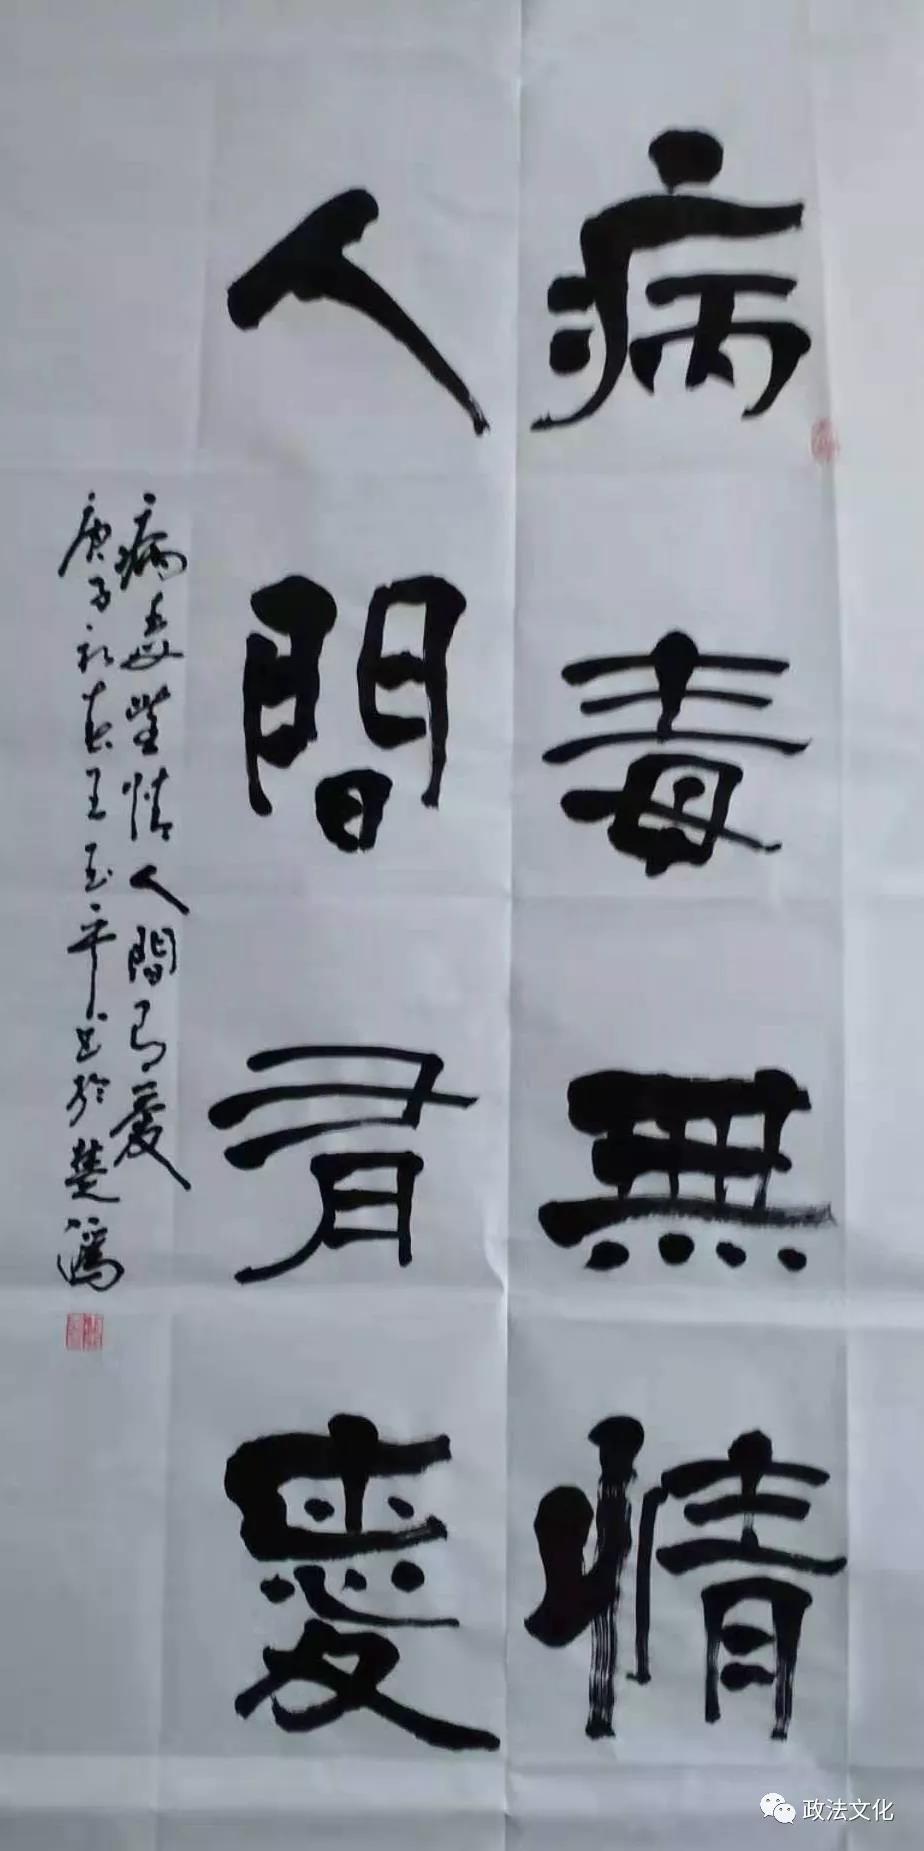 病毒無情
人間有愛
病毒無情人間有愛
庚子初春王玉平书於楚馮
政法文化